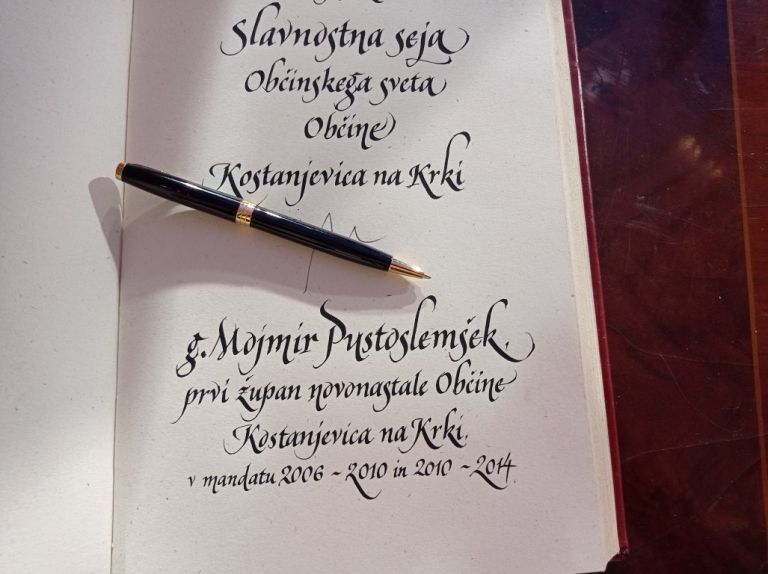 Slavnostna seja
Občinskega sveta
Občine
Kostanjevica na Krki
g. Mojmir Pustoslemšek,
prvi župan novonastale Občine
Kostanjevica na Krki,
v mandatu 2006 ~ 2010 in 2010 ~ 2014